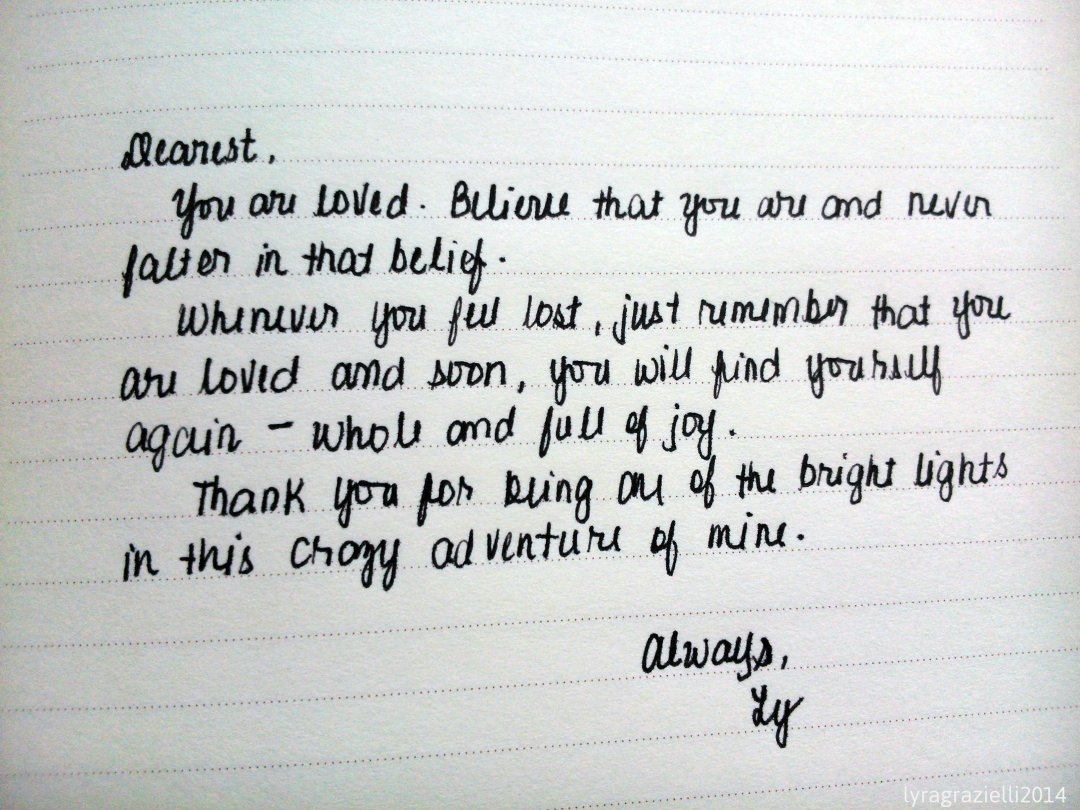 Dearest,
You are loved. Believe that you are and never
falter in that belief.
Whenever you feel lost, just remember that you
are loved and soon, you will find yourself
again - whole and full of joy.
Thank you for being one of the bright lights
in this crazy adventure of mine.
Always,
Ly
lyragrazielli2014